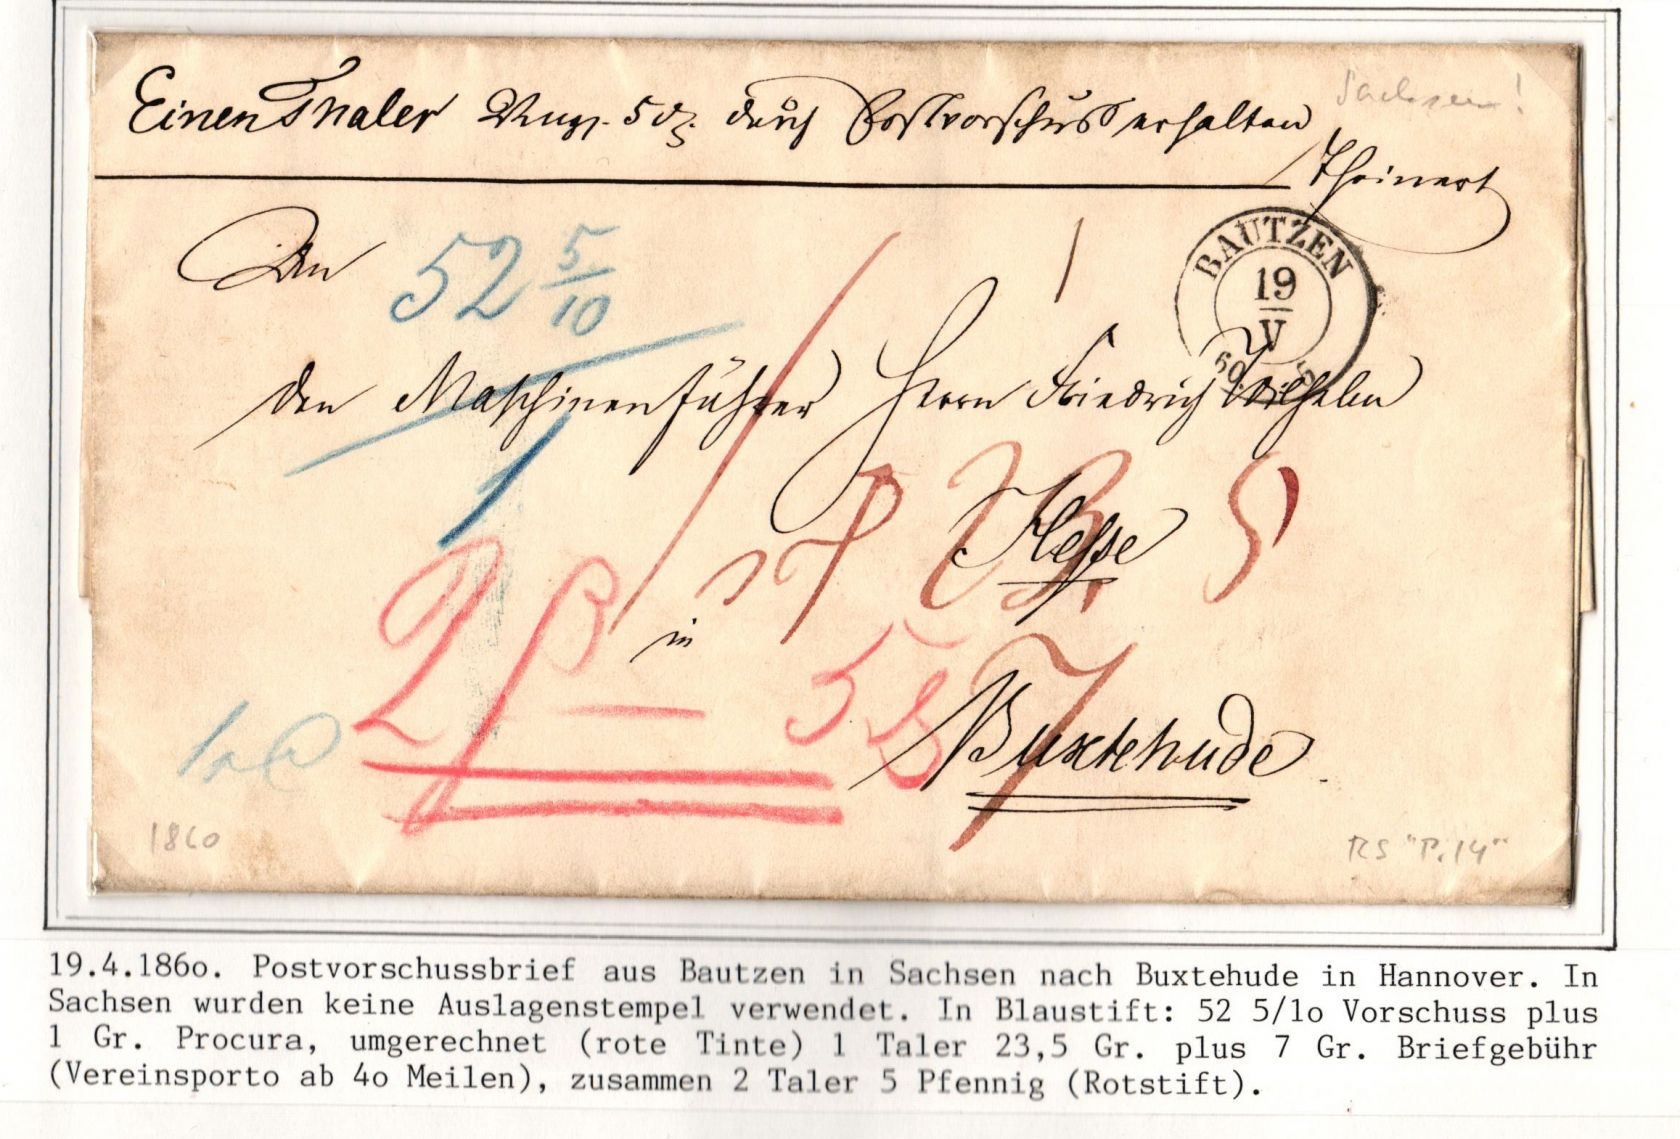 Einen Thaler 22 Ngr. 5 dz. durch Postvorschuss erhalten
Sachsen!
Theinert
An
52 5/10
1
BAUTZEN
19
V
60
den Maschinenführer Herrn Friedrich Wilhelm
1
Hesse
in
2 – 5
7
Buxtehude
1860
RS "P.14"
19.4.186o. Postvorschussbrief aus Bautzen in Sachsen nach Buxtehude in Hannover. In
Sachsen wurden keine Auslagenstempel verwendet. In Blaustift: 52 5/1o Vorschuss plus
1 Gr. Procura, umgerechnet (rote Tinte) 1 Taler 23,5 Gr. plus 7 Gr. Briefgebühr
(Vereinsporto ab 4o Meilen), zusammen 2 Taler 5 Pfennig (Rotstift).